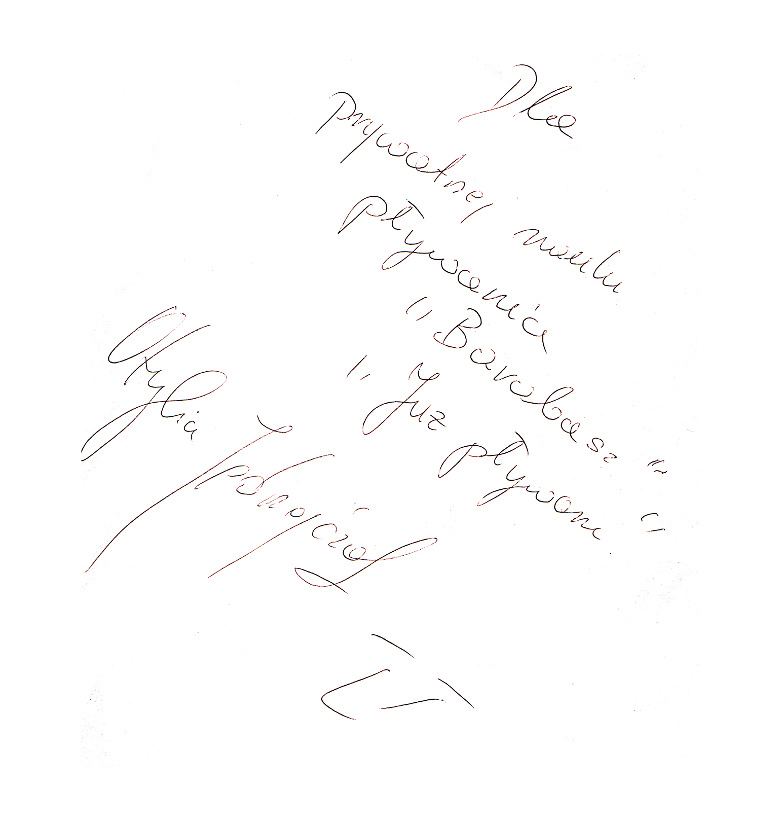 Dla
prywatnej nauki
pływania
"Barabasz"
"Już pływam"
Otylia Jędrzejczak